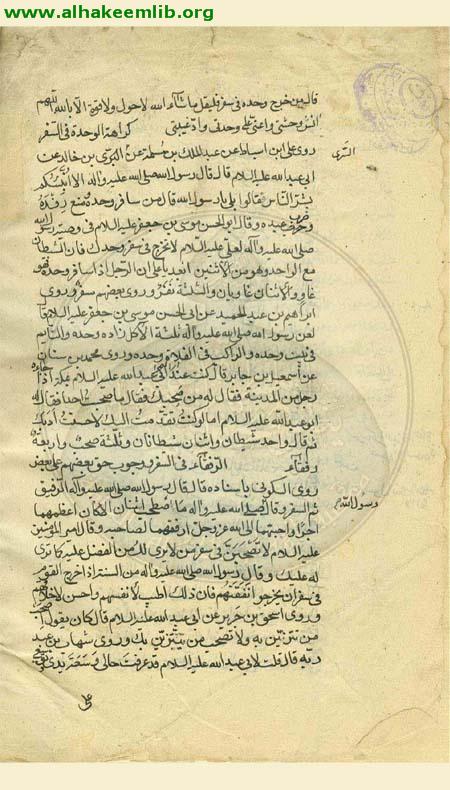 www.alhakeemlib.org
قال من خرج وحده فى سفر فليقل ما شآء الله لا حول ولا قوة الّا بالله اللّهم
انس وحشتى واعنّى على وحدتى وادّ غيبتى كراهة الوحدة فى السّفر
روى على ابن اسباط عن عبد الملك بن مسلمة عن السّرى بن خالد عن
السّرى
ابى عبد الله عليه السلام قال قال رسول الله صلى الله عليه وآله الا انبّئكم
بشرّ النّاس قالوا بلى يا رسول الله قال من سافر وحده ومنع رفده
وضرب عبده وقال ابو الحسن موسى بن جعفر عليه السلام فى وصيّة رسول الله
صلى الله عليه وآله لعلى عليه السلام لا تخرج فى سفر وحدك فان الشّيطان
مع الواحد وهو من الاثنين ابعد يا على ان الرجل اذا سافر وحده فهو
غاو والاثنان غاويان والثلثة نفر وروى بعضهم سفر وروى
ابراهيم بن عبد الحميد عن ابى الحسن موسى بن جعفر عليه السلام قال
لعن رسول الله صلى الله عليه وآله ثلثة الآكل زاده وحده والنّائم
فى بيت وحده والراكب فى الفلاة وحده وروى محمد بن سنان
عن اسمعيل بن جابر قال كنت عند ابى عبد الله عليه السلام بمكة اذ جاءه
رجل من المدينة فقال له من صحبك فقال ما صحبت احدا فقال له
ابو عبد الله عليه السلام اما لو كنت تقدّمت اليك لاحسنت ادبك
ثم قال واحد شيطان واثنان شيطانان وثلثة صحب واربعة
رفقاء الرّفقاء فى السّفر ووجوب حق بعضهم على بعض
روى السكونى باسناده قال قال رسول الله صلى الله عليه وآله الرفيق
ثم السفر وقال صلى الله عليه وآله ما اصطحب اثنان الا كان اعظمهما
ورسول الله
اجرا واحبّهما الى الله عز وجل ارفقهما لصاحبه وقال امير المؤمنين
عليه السلام لا تصحبنّ فى سفر من لا يرى لك من الفضل عليه كما ترى
له عليك وقال رسول الله صلى الله عليه وآله من السنة اذا خرج القوم
فى سفر ان يخرجوا نفقتهم فان ذلك اطيب لانفسهم واحسن لاخلاقهم
وروى اسحق بن جرير عن ابى عبد الله عليه السلام قال كان يقول اصحب
من تتزيّن به ولا تصحب من يتزيّن بك وروى شهاب بن عبد
ربّه قال قلت لابى عبد الله عليه السلام قد عرفت حالى وسعة يدى